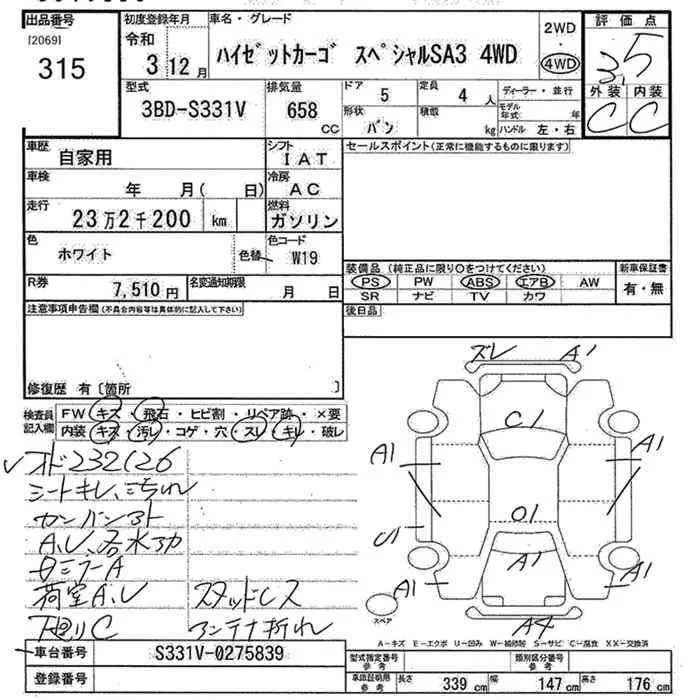 出品番号
[2069]
315
初度登録年月
令和
3 12 月
車名・グレード
ハイゼットカーゴ スペシャルSA3 4WD
2WD
・
4WD
評価点
3.5
外装 内装
C C
型式
3BD-S331V
排気量
658
CC
ドア
5
定員
4 人
形状
バン
積載
kg
ディーラー・並行
モデル年式 年
ハンドル 左・右
車歴
自家用
シフト
IAT
車検
年 月( 日)
冷房
AC
走行
23万2千200 km
燃料
ガソリン
色
ホワイト
色替
色コード
W19
R券
7,510 円
名変通知期限
月 日
セールスポイント(正常に機能するものに限ります)
装備品 (純正品に限り○をつけてください)
PS PW ABS エアB AW
SR ナビ TV カワ
新車保証書
有・無
後日品
注意事項申告欄(不具合内容等は具体的に記入して下さい)
修復歴 有 [箇所 ]
検査員記入欄
FW キズ・飛石・ヒビ割・リペア跡・×要
内装 キズ・汚レ・コゲ・穴・スレ・キレ・破レ
オド232126
シートキレ、
カンバンアト
荷室A.U スタッドレス
下廻りC アンテナ折れ
ズレ A1
C1
A1 A1
U1
A1
A1 A1
A4
スペア
A-キズ E-エクボ U-凹み W-補修跡 S-サビ C-腐食 XX-交換済
車台番号
S331V-0275839
登録番号
型式指定番号
参考
類別区分番号
参考
車庫証明用
参考
長さ 339 cm 幅 147 cm 高さ 176 cm